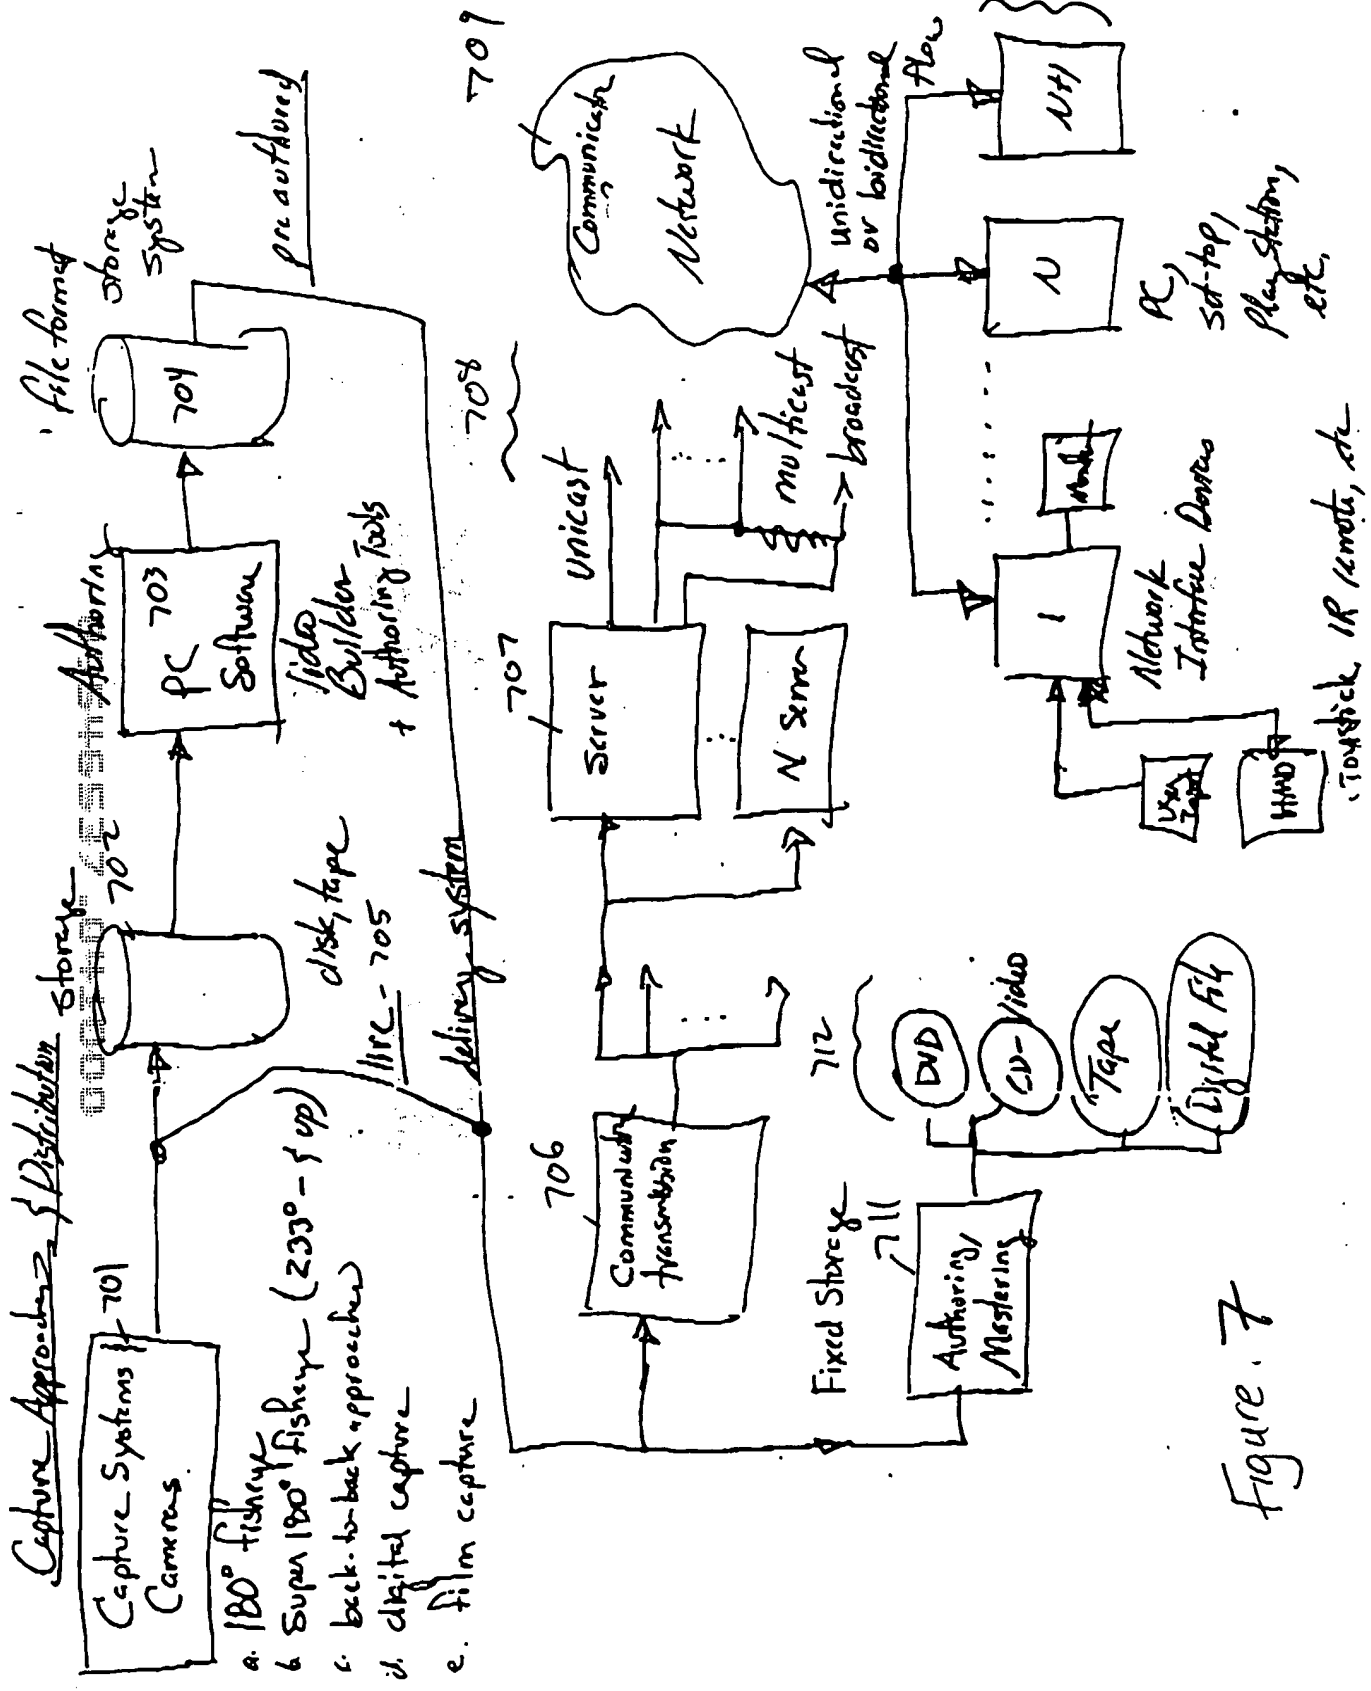 Capture Approaches & Distribution
Capture Systems
Cameras
701
a. 180° fisheye
b. Super 180° fisheye - (233° - & up)
c. back-to-back approaches
d. digital capture
e. film capture
Storage
702
disk, tape
live - 705
Authoring
PC
703
Software
Video
Builder
+ Authoring Tools
file format
704
storage
system
pre authored
delivery system
706
Communicatn
transmission
707
Server
N Server
unicast
multicast
broadcast
708
709
Communicatn
Network
unidirectional
or bidirectional
flow
Fixed Storage
711
Authoring,
Mastering
712
DVD
CD-Video
Tape
Digital File
1
Monitor
Network
Interface Devices
User
Input
HMD
Joystick, IR remote, etc
N
PC,
Set-top,
Play Station,
etc,
N+1
Figure. 7